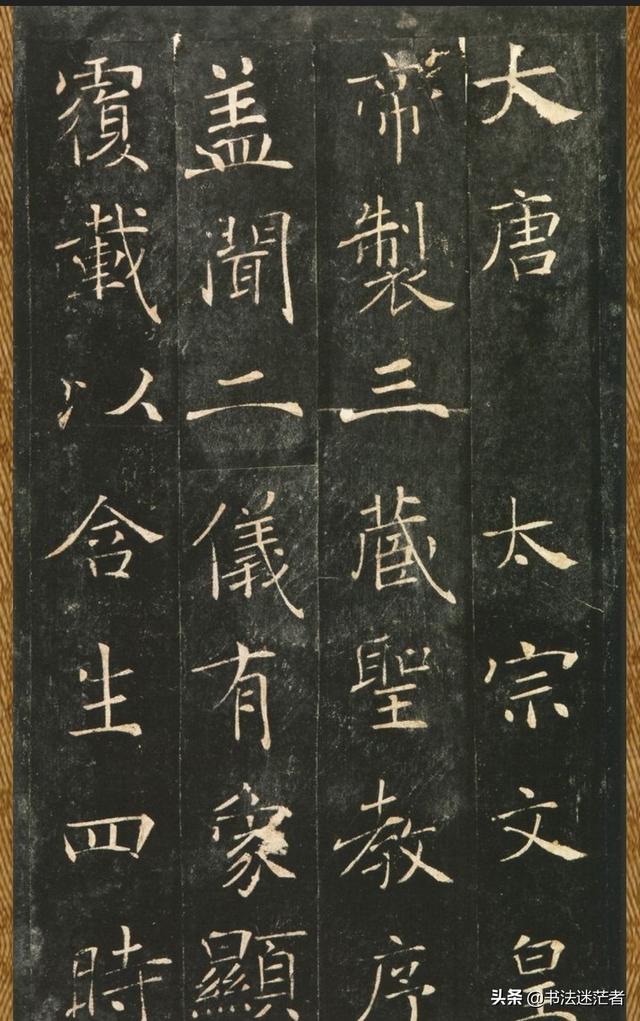 大唐太宗文皇
帝製三藏聖教序
盖聞二儀有象顯
覆載以含生四時
头条 @书法迷茫者